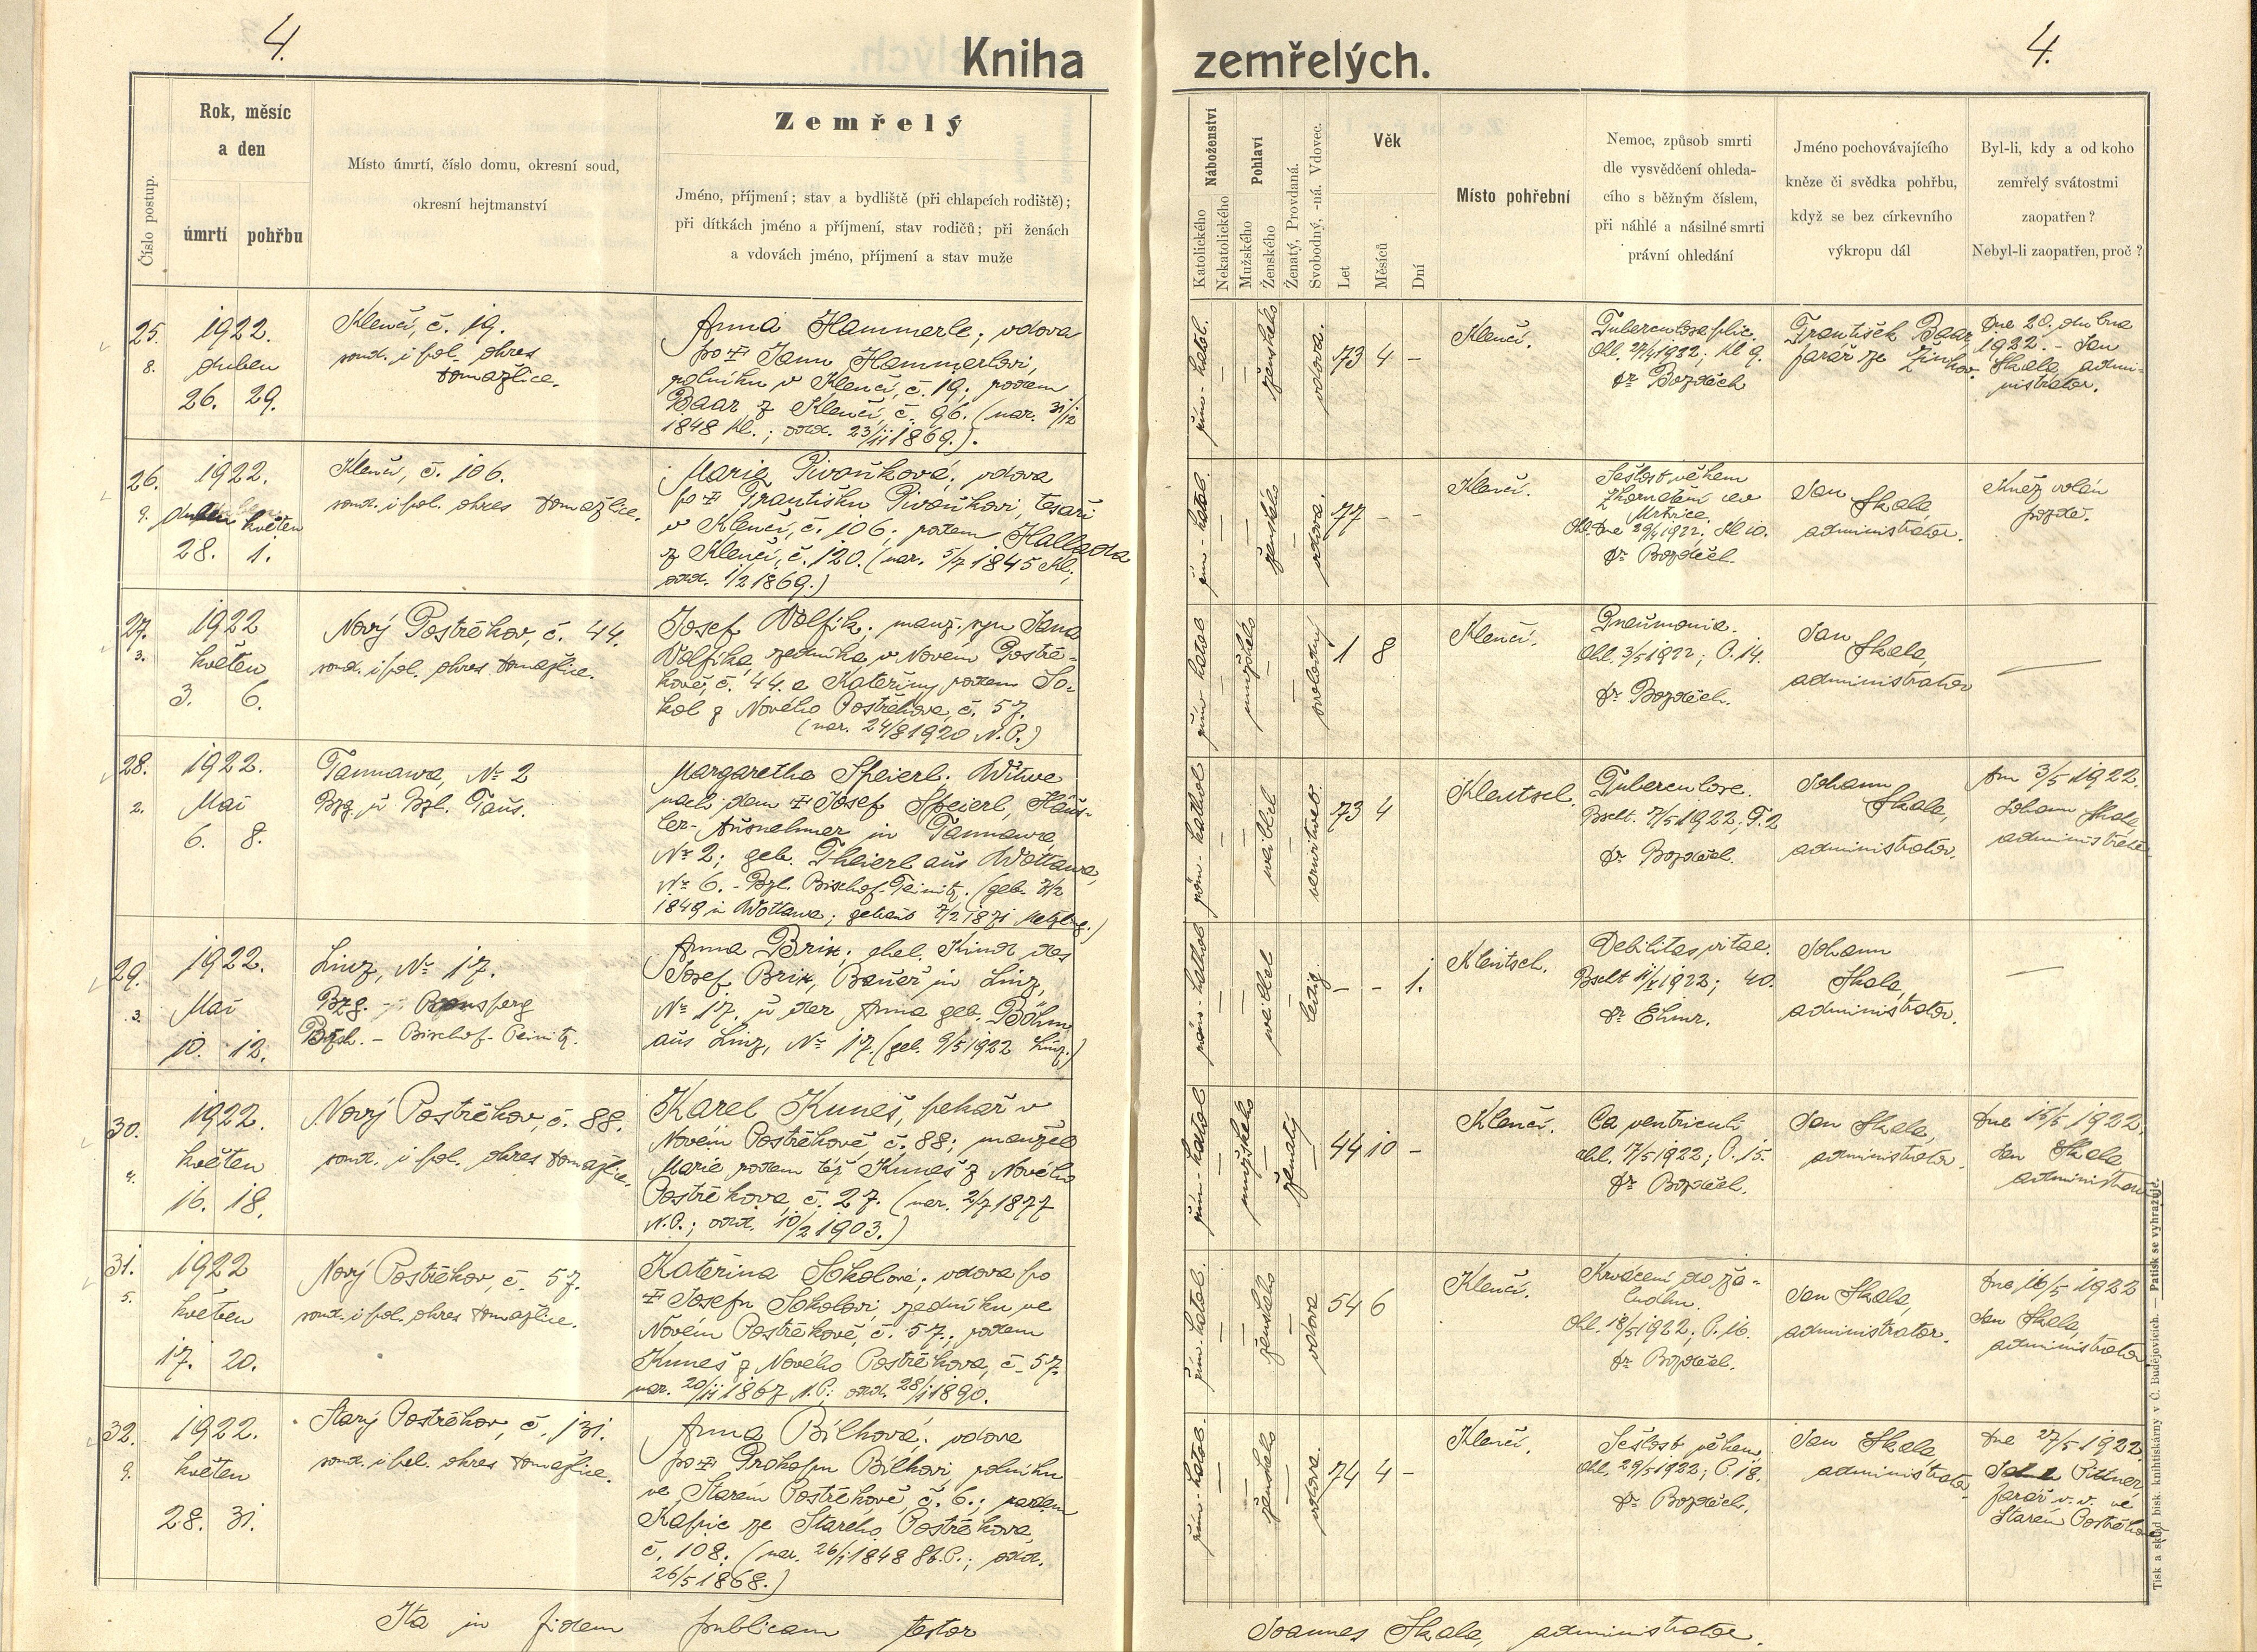 4.
Kniha zemřelých.
4.
Číslo postup.
Rok, měsíc
a den
úmrtí pohřbu
Místo úmrtí, číslo domu, okresní soud,
okresní hejtmanství
Zemřelý
Jméno, příjmení; stav a bydliště (při chlapcích rodiště);
při dítkách jméno a příjmení, stav rodičů; při ženách
a vdovách jméno, příjmení a stav muže
Náboženství
Katolického
Nekatolického
Pohlaví
Mužského
Ženského
Ženatý, Provdaná.
Svobodný, -ná. Vdovec.
Věk
Let
Měsíců
Dní
Místo pohřební
Nemoc, způsob smrti
dle vysvědčení ohleda-
cího s běžným číslem,
při náhlé a násilné smrti
právní ohledání
Jméno pochovávajícího
kněze či svědka pohřbu,
když se bez církevního
výkropu dál
Byl-li, kdy a od koho
zemřelý svátostmi
zaopatřen?
Nebyl-li zaopatřen, proč?
25.
8.
1922.
duben
26. 29.
Klenčí, č. 19.
soud. i pol. okres
Domažlice.
Anna Hammerle; vdova
po † Janu Hammerlovi,
rolníku v Klenčí, č. 19; rodem
Baar z Klenčí, č. 96. (nar. 31/12
1848 Kl.; odd. 23/11 1869.).
řím.-katol.
ženského
vdova.
73 4 –
Klenčí.
Tuberculosa plic.
Ohl. 27/4 1922; Kl 9.
Dr Bozděch
František Baar,
farář ze Žinkov.
Dne 20. dubna
1922. – Jan
Skala, admi-
nistrator.
26.
9.
1922.
duben květen
28. 1.
Klenčí, č. 106.
soud. i pol. okres Domažlice.
Marie Pivoňková; vdova
po † Františku Pivoňkovi, tesaři
v Klenčí, č. 106; rodem Hallada
z Klenčí, č. 120. (nar. 5/7 1845 Kl.;
odd. 1/2 1869.)
řím.-katol.
ženského
vdova.
77 – –
Klenčí.
Sešlost věkem
Mrtvice.
Ohl. dne 29/4 1922; Kl 10.
Dr Bozděch.
Jan Skala,
administrator.
Kněz volán
pozdě.
27.
3.
1922
květen
3. 6.
Nový Postřekov, č. 44.
soud. i pol. okres Domažlice.
Josef Volfík; manž. syn Jana
Volfíka, zedníka v Novém Postře-
kově, č. 44. a Kateřiny rodem So-
kol z Nového Postřekova, č. 57.
(nar. 24/8 1920 N.P.)
řím-katol
mužského
svobodný
1 8
Klenčí.
Pneumonia.
Ohl. 3/5 1922; P. 14.
Dr Bozděch.
Jan Skala,
administrator
—
28.
2.
1922.
Mai
6. 8.
Tannawa, № 2
Bzg. u Bzl. Taus.
Margaretha Speierl. Witwe
nach dem † Josef Speierl, Häus-
ler-Ausnehmer in Tannawa,
№ 2; geb. Theierl aus Wottawa,
№ 6. – Bzl. Bischof-Teinitz. (geb.
1849 in Wottawa; getraut 7/2 1871
röm-kathol
weiblel
verwitwet.
73 4
Klentsch.
Tuberculose.
Bschlt. 7/5 1922; T. 2
Dr Bozděch.
Johann
Skala,
administrator.
Am 3/5 1922.
Johann Skala,
administrator
29.
3.
1922.
Mai
10. 12.
Linz, № 17.
Bzg. – Ronsperg
Bzh. – Bischof-Teinitz.
Anna Brix; ehel. Kind des
Josef Brix, Bauer in Linz,
№ 17. u der Anna geb. Böhm
aus Linz, № 17. (geb. 9/5 1922 Linz.)
röm-kathol
weiblel
ledig.
– – 1.
Klentsch.
Debilitas vitae.
Bschlt 11/V 1922; 40.
Johann
Skala,
administrator.
—
30.
4.
1922.
květen
16. 18.
Nový Postřekov, č. 88.
soud. i pol. okres Domažlice.
Karel Kuneš, pekař v
Novém Postřekově, č. 88; manžel
Marie rodem též Kuneš z Nového
Postřekova, č. 27. (nar. 2/7 1877
N.P.; odd. 10/2 1903.)
řím-katol
mužského
ženatý
44 10 –
Klenčí.
Ca ventriculi
ohl. 17/5 1922; P. 15.
Dr Bozděch.
Jan Skala,
administrator.
Dne 15/5 1922.
Jan Skala
administrator
31.
5.
1922
květen
17. 20.
Nový Postřekov, č. 57.
soud. i pol. okres Domažlice.
Kateřina Sokolová; vdova po
† Josefu Sokolovi, zedníku ve
Novém Postřekově, č. 57.; rodem
Kuneš z Nového Postřekova, č. 57.
nar. 20/11 1867 N.P.; odd. 28/1 1890.
řím.-katol.
ženského
vdova
54 6
Klenčí.
Krvácení do ža-
ludku.
Ohl. 18/5 1922; P. 16.
Dr Bozděch.
Jan Skala,
administrator.
Dne 16/5 1922
Jan Skala,
administrator
32.
9.
1922.
květen
28. 31.
Starý Postřekov, č. 131.
soud. i pol. okres Domažlice.
Anna Bílková; vdova
po † Prokopu Bílkovi, rolníku
ve Starém Postřekově, č. 6.; rodem
Kapic ze Starého Postřekova,
č. 108. (nar. 26/1 1848 St.P.; odd.
26/5 1868.)
řím.-katol.
ženského
vdova.
74 4 –
Klenčí.
Sešlost věkem.
ohl. 29/5 1922; P. 18.
Dr Bozděch.
Jan Skala,
administrator.
Dne 27/5 1922.
Pittner,
farář v.v. ve
Starém Postřekově
Ita in fidem publicam testor
Joannes Skala, administrator.
Tisk a sklad bisk. knihtiskárny v Č. Budějovicích. — Patisk se vyhražuje.